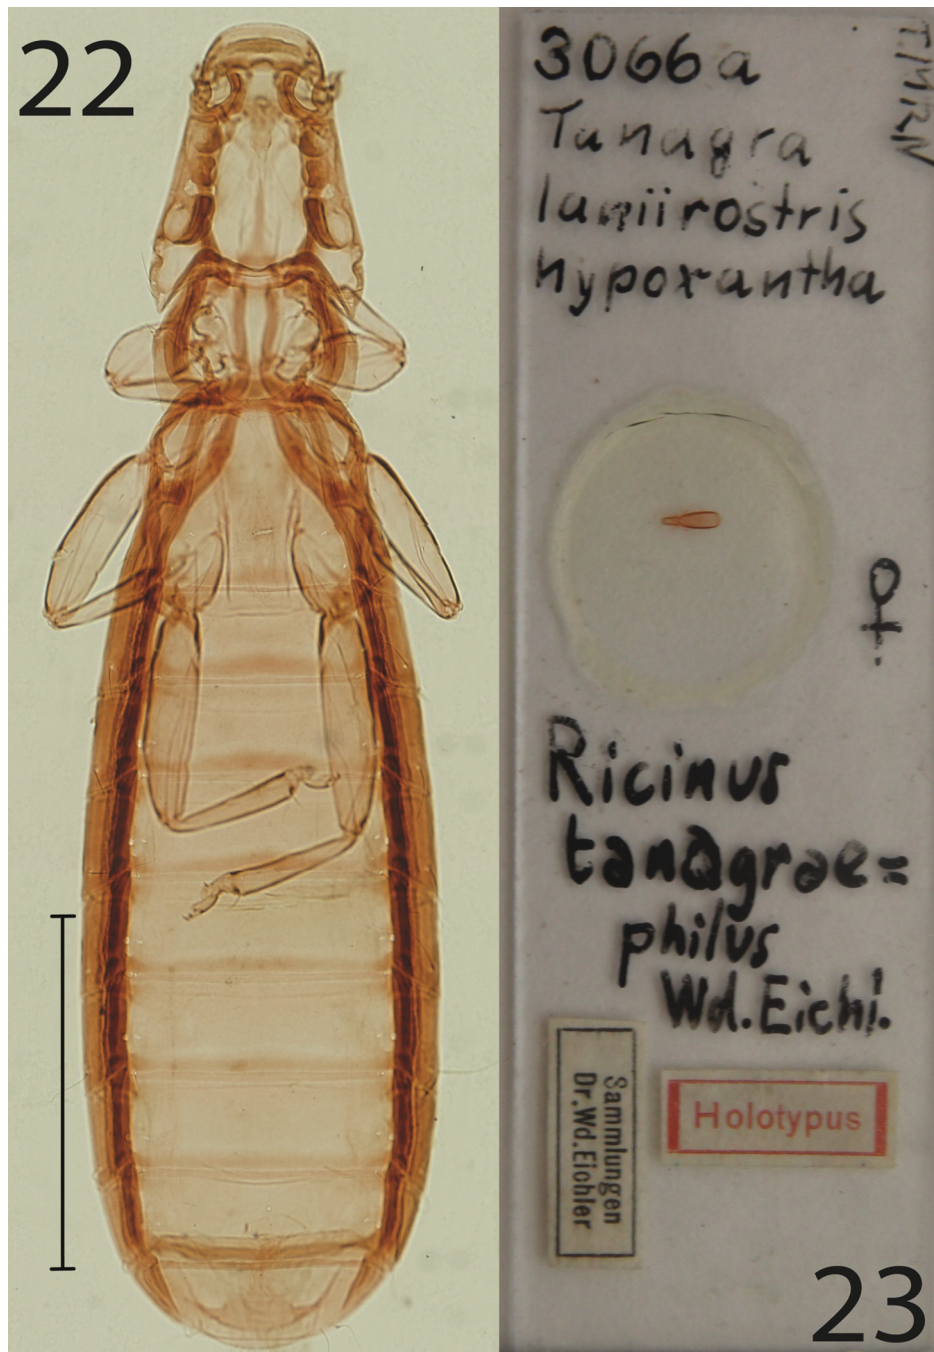 22
3066a
Tanagra
laniirostris
hypoxantha
♀
Ricinus
tanagrae=
philus
Wd.Eichl.
Sammlungen
Dr.Wd.Eichler
Holotypus
23